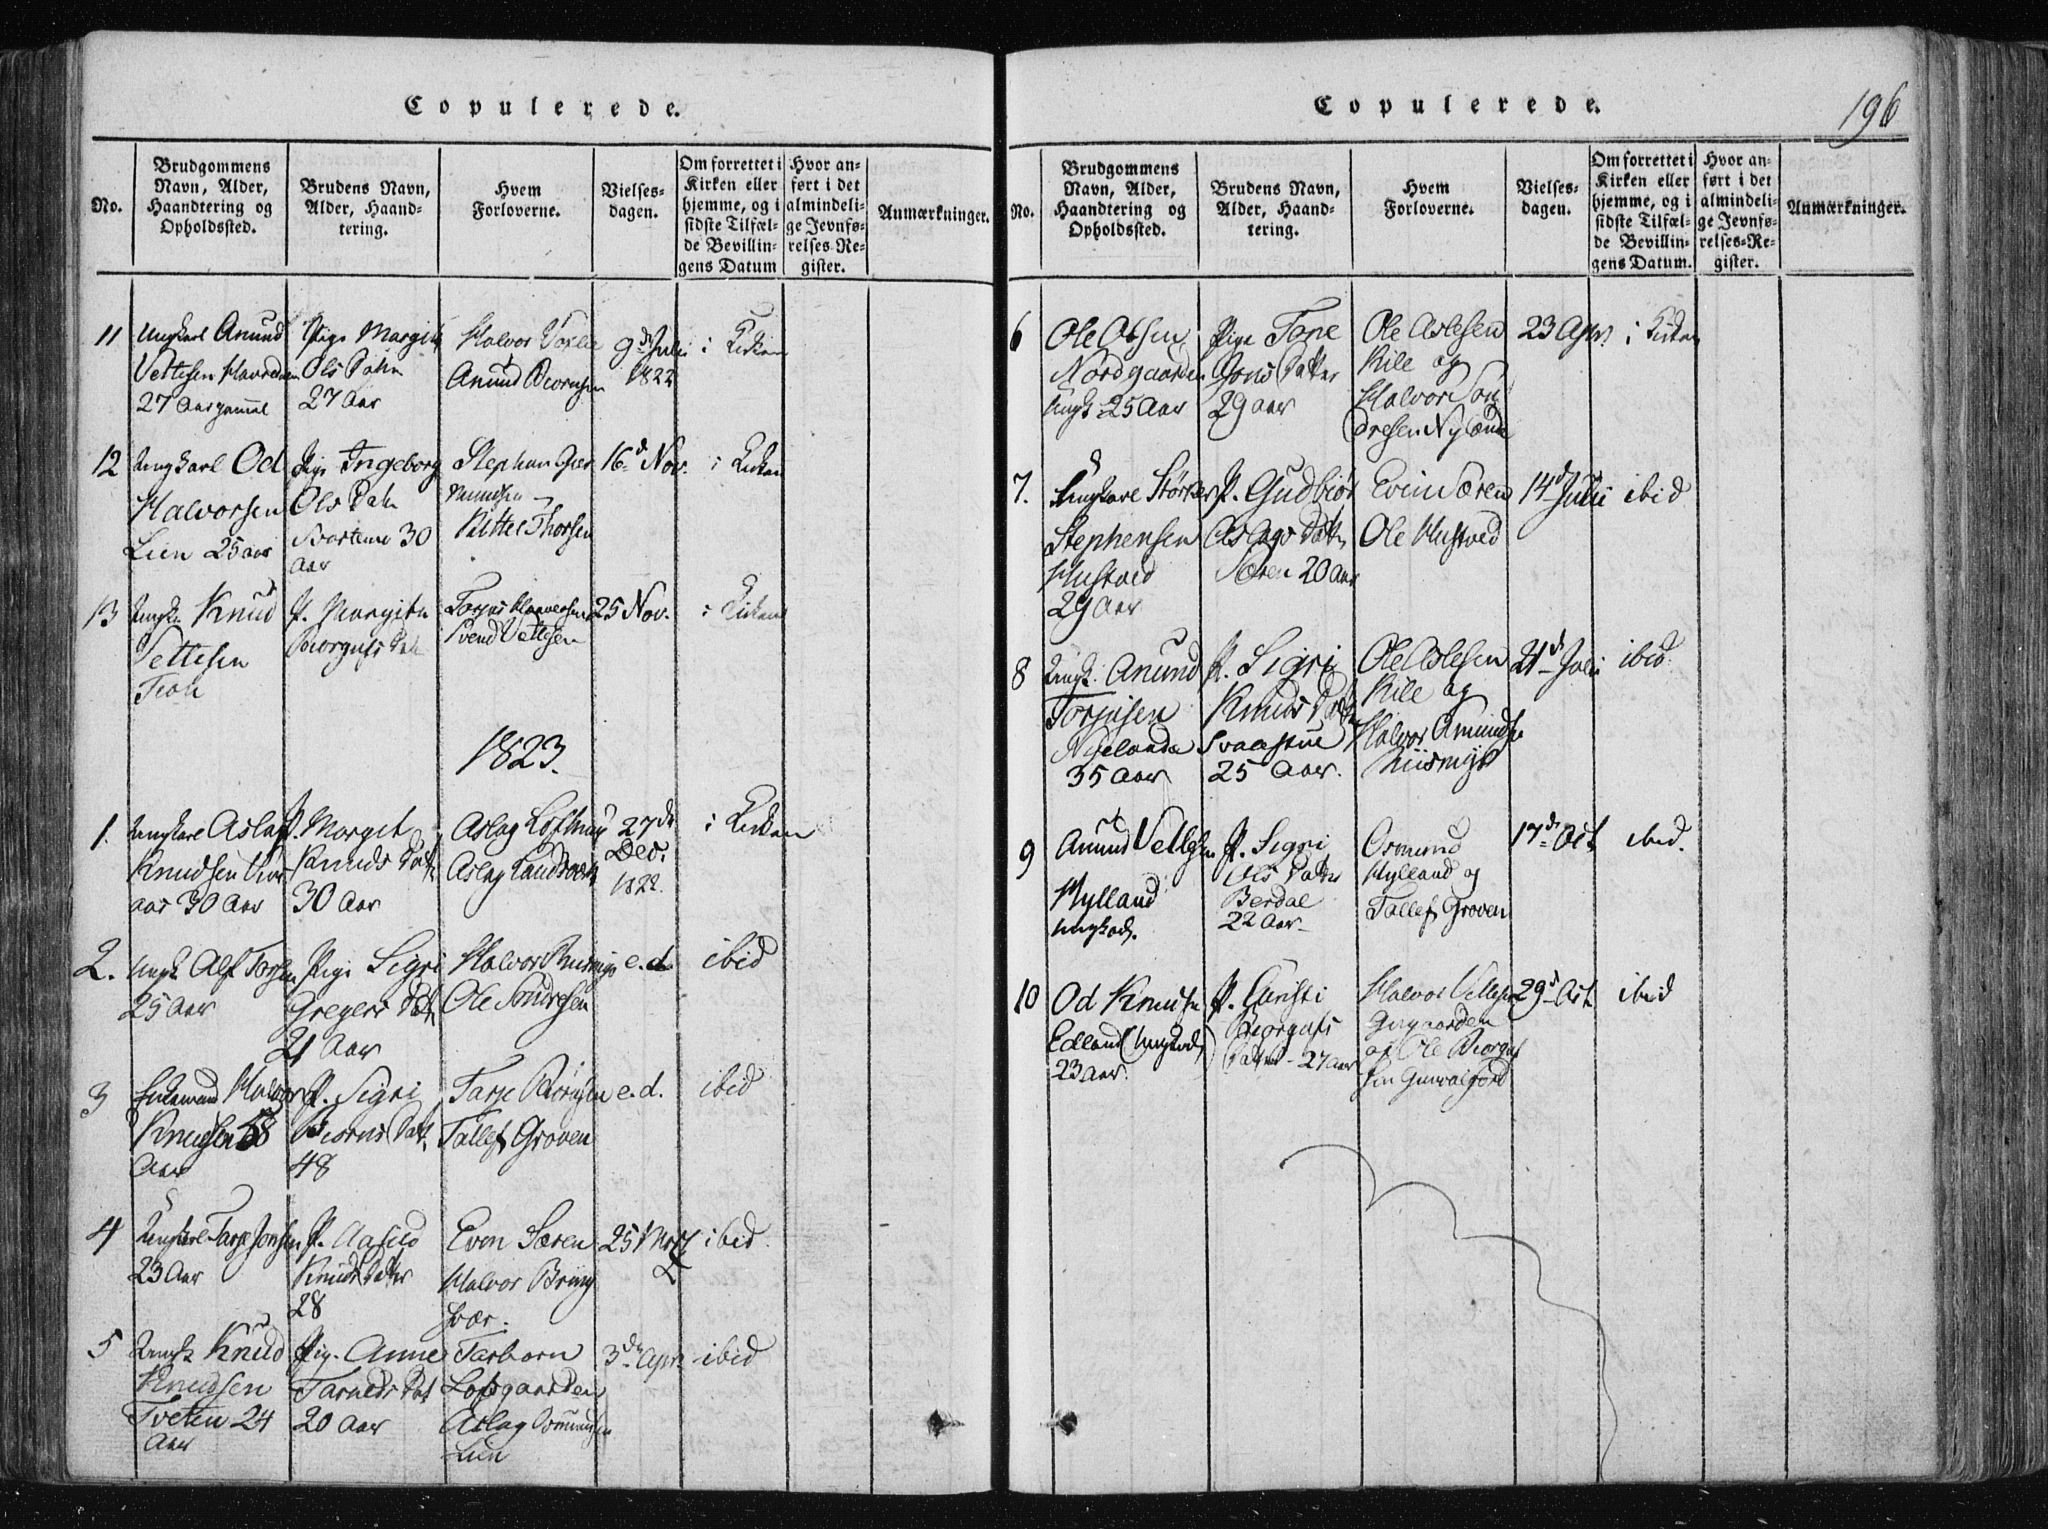 Copulerede.
No.
Brudgommens
Navn, Alder,
Haandtering og
Opholdssted.
Brudens Navn,
Alder, Haand-
tering.
Hvem
Forloverne.
Vielses-
dagen.
Om forrettet i
Kirken eller
hjemme, og i
sidste Tilfæl-
de Bevillin-
gens Datum
Hvor an-
ført i det
almindeli-
ge Jevnfø-
relses-Re-
gister.
Anmærkninger.
11
Ungkarl Anund
Vettesen
27 Aar gammel
Pige Margit
Ols Datter
27 Aar
Halvor
Anund Biornsen
9de Julii
1822
i Kirken
12
Ungkarl Od
Halvorsen
Lien 25 aar
Pige Ingeborg
Ols Datt
30
aar
Stephan
Kittel Thorsen
16d Nov.
i Kirken
13
Ungk. Knud
Vettesen
P. Margitn
Biorgufs Datt
Svend Vettesen
25 Nov.
i Kirken
1823.
1.
Ungkarl Aslag
Knudsen
aas 30 Aar
P. Margit
Knuds Datt
30 Aar
Aslag Lofthuus
Aslag
27de
Dec.
1822.
i Kirken
2.
Ungk Alf
25 Aar
Pige Sigri
Gregers Datt
21 Aar
Halvor
Ole Sondresen
e.d.
ibid
3
Enkemand Halvor
Knudsen 58
Aar
P. Sigri
Biorns Datt.
48
Tarje Biornsen
Tallef Groven
e.d.
ibid
4
Ungkarl Tarje Jonsen
23 Aar
P. Aasild
Knuds Datter
28
Even Særen
Halvor Bring
svær.
25 Mart
ibid
5
Ungk Knud
Knudsen
Tveten 24
Aar
Pig. Anne
Datt
20 Aar
Tarborn
Lofsgaarden
Aslag Osmundsen
Lien
3de Apr.
ibid
Copulerede.
196
No.
Brudgommens
Navn, Alder,
Haandtering og
Opholdssted.
Brudens Navn,
Alder, Haand-
tering.
Hvem
Forloverne.
Vielses-
dagen.
Om forrettet i
Kirken eller
hjemme, og i
sidste Tilfæl-
de Bevillin-
gens Datum.
Hvor an-
ført i det
almindeli-
ge Jevnfø-
relses-Re-
gister.
Anmærkninger.
6
Ole Olsen
Nordgaarden
Ungk 25 Aar
Pige Tone
Jons Datter
29 aar
Ole Aslesen
Kile og
Halvor Son
dresen Nylænde
23 Apr.
i Kirken
7.
Ungkarl
Stephensen
Hustved
29 Aar
P. Gudbiør
Aslags Datt
Særen 20 Aar
Even Særen
Ole Hustved
14d Julii
ibid
8
Ungk. Anund
Torjusen
35 Aar
P. Sigri
Knuds Datt
Svaastue
25 Aar.
Ole Aslesen
Kile og
Halvor Amunds
21d Julii
ibid.
9
Anund Vettesen
Hylland
Ungkarl.
P. Sigri
Ols Datter
Berdal
22 Aar
Osmund
Hylland og
Tallef Groven
17d Oct.
ibid.
10
Od Knudsen
Edland (Ungkarl)
23 Aar.
P. Christi
Biorgufs
Datter 27 aar
Halvor Vettesen
og Ole Biorguf
sen
29d Oct.
ibid